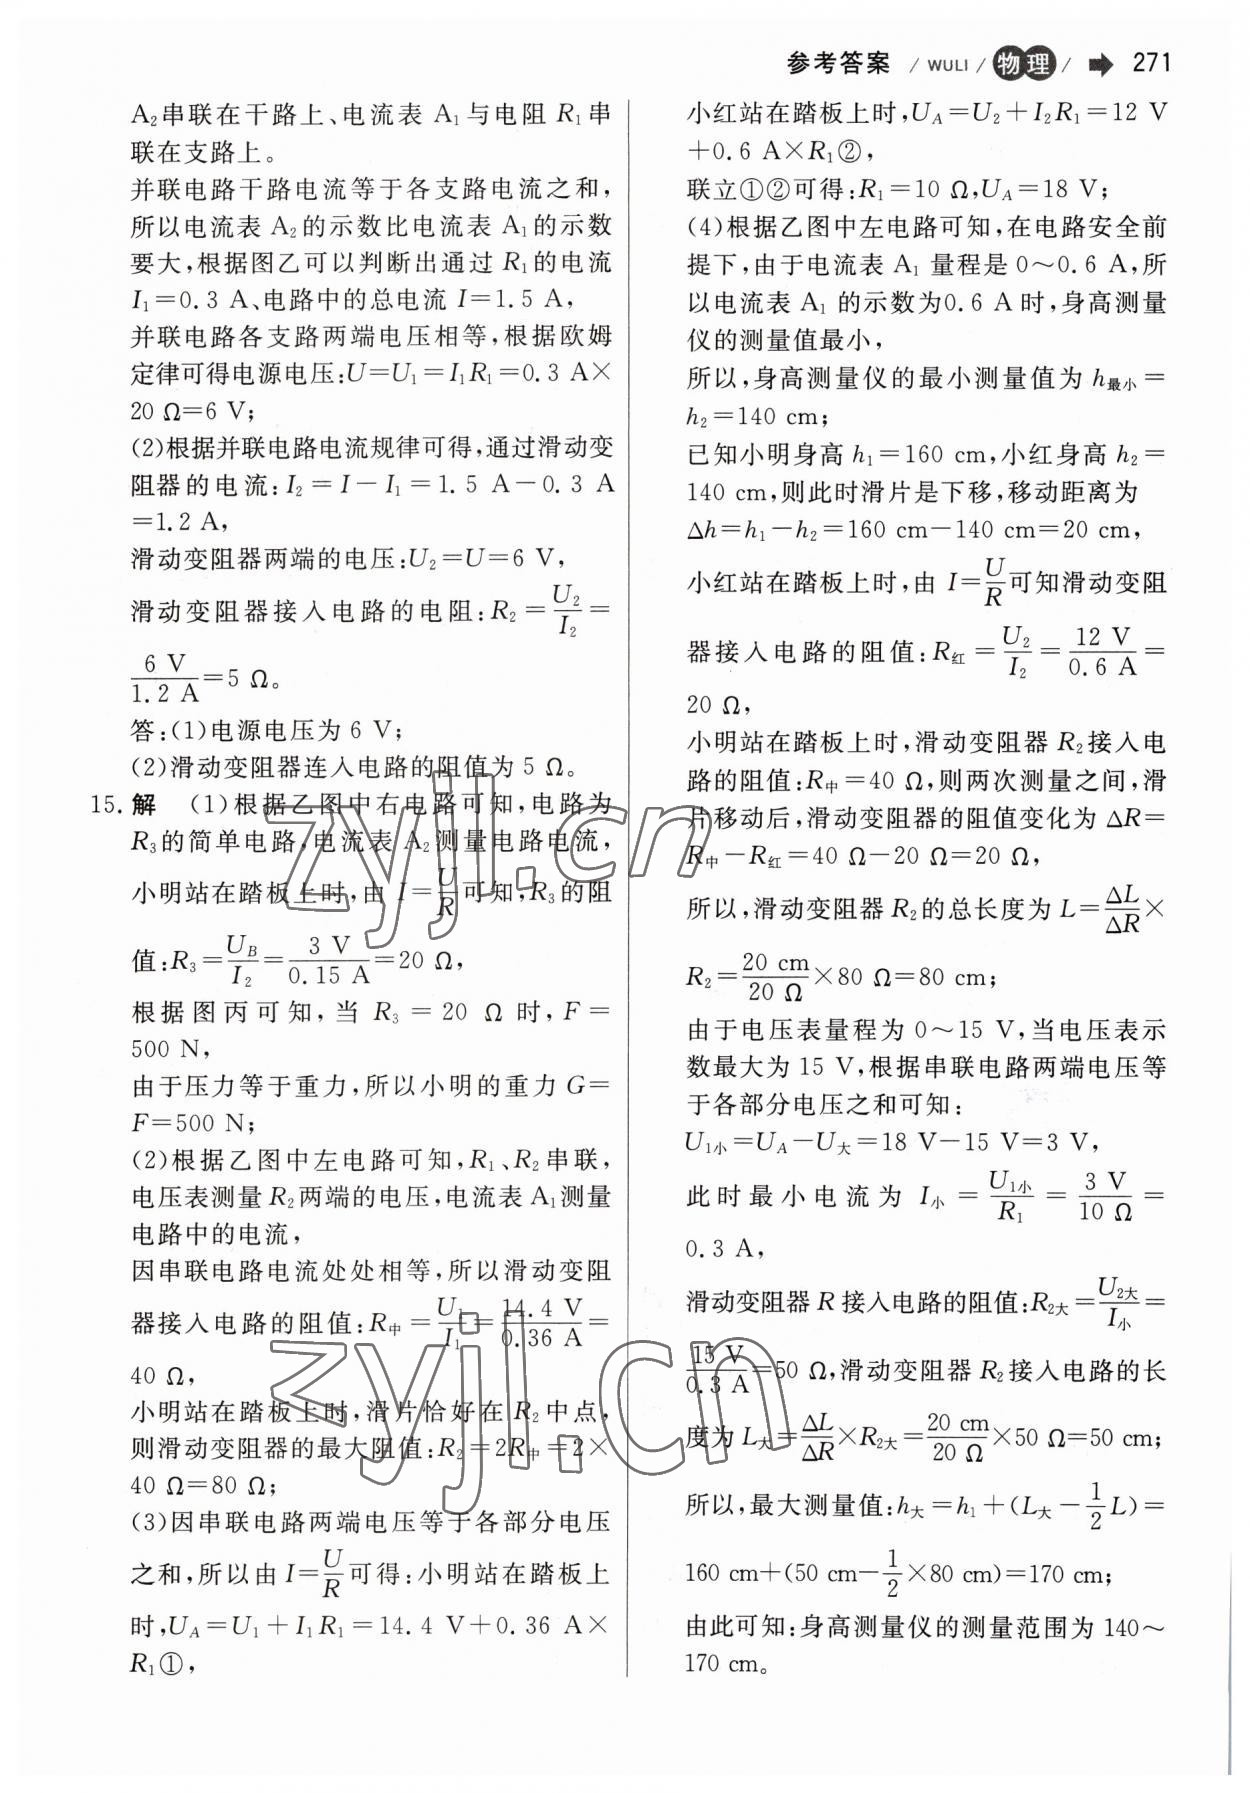 参考答案 / WULI / 物理 / 271
A₂串联在干路上、电流表 A₁与电阻 R₁串
联在支路上。
并联电路干路电流等于各支路电流之和，
所以电流表 A₂的示数比电流表 A₁的示数
要大，根据图乙可以判断出通过 R₁的电流
I₁=0.3 A、电路中的总电流 I=1.5 A，
并联电路各支路两端电压相等，根据欧姆
定律可得电源电压：U=U₁=I₁R₁=0.3 A×
20 Ω=6 V；
(2)根据并联电路电流规律可得，通过滑动变
阻器的电流：I₂=I-I₁=1.5 A-0.3 A
=1.2 A，
滑动变阻器两端的电压：U₂=U=6 V，
滑动变阻器接入电路的电阻：R₂=U₂/I₂=
6 V/1.2 A=5 Ω。
答：(1)电源电压为 6 V；
(2)滑动变阻器连入电路的阻值为 5 Ω。
15. 解 (1)根据乙图中右电路可知，电路为
R₃的简单电路，电流表 A₂测量电路电流，
小明站在踏板上时，由 I=U/R可知，R₃的阻
值：R₃=U_B/I₂=3 V/0.15 A=20 Ω，
根据图丙可知，当 R₃=20 Ω 时，F=
500 N，
由于压力等于重力，所以小明的重力 G=
F=500 N；
(2)根据乙图中左电路可知，R₁、R₂串联，
电压表测量 R₂两端的电压，电流表 A₁测量
电路中的电流，
因串联电路电流处处相等，所以滑动变阻
器接入电路的阻值：R中=U₁/I₁=14.4 V/0.36 A=
40 Ω，
小明站在踏板上时，滑片恰好在 R₂中点，
则滑动变阻器的最大阻值：R₂=2R中=2×
40 Ω=80 Ω；
(3)因串联电路两端电压等于各部分电压
之和，所以由 I=U/R可得：小明站在踏板上
时，U_A=U₁+I₁R₁=14.4 V+0.36 A×
R₁①，
小红站在踏板上时，U_A=U₂+I₂R₁=12 V
+0.6 A×R₁②，
联立①②可得：R₁=10 Ω，U_A=18 V；
(4)根据乙图中左电路可知，在电路安全前
提下，由于电流表 A₁ 量程是 0～0.6 A，所
以电流表 A₁ 的示数为0.6 A 时，身高测量
仪的测量值最小，
所以，身高测量仪的最小测量值为 h最小=
h₂=140 cm；
已知小明身高 h₁=160 cm，小红身高 h₂=
140 cm，则此时滑片是下移，移动距离为
Δh=h₁-h₂=160 cm-140 cm=20 cm，
小红站在踏板上时，由 I=U/R可知滑动变阻
器接入电路的阻值：R红=U₂/I₂=12 V/0.6 A=
20 Ω，
小明站在踏板上时，滑动变阻器 R₂接入电
路的阻值：R中=40 Ω，则两次测量之间，滑
片移动后，滑动变阻器的阻值变化为 ΔR=
R中-R红=40 Ω-20 Ω=20 Ω，
所以，滑动变阻器 R₂的总长度为 L=ΔL/ΔR×
R₂=20 cm/20 Ω×80 Ω=80 cm；
由于电压表量程为 0～15 V，当电压表示
数最大为 15 V，根据串联电路两端电压等
于各部分电压之和可知：
U₁小=U_A-U大=18 V-15 V=3 V，
此时最小电流为 I小=U₁小/R₁=3 V/10 Ω=
0.3 A，
滑动变阻器 R 接入电路的阻值：R₂大=U₂大/I小=
15 V/0.3 A=50 Ω，滑动变阻器 R₂接入电路的长
度为 L大=ΔL/ΔR×R₂大=20 cm/20 Ω×50 Ω=50 cm；
所以，最大测量值：h大=h₁+(L大-1/2L)=
160 cm+(50 cm-1/2×80 cm)=170 cm；
由此可知：身高测量仪的测量范围为 140～
170 cm。
zyjl.cn
zyjl.cn